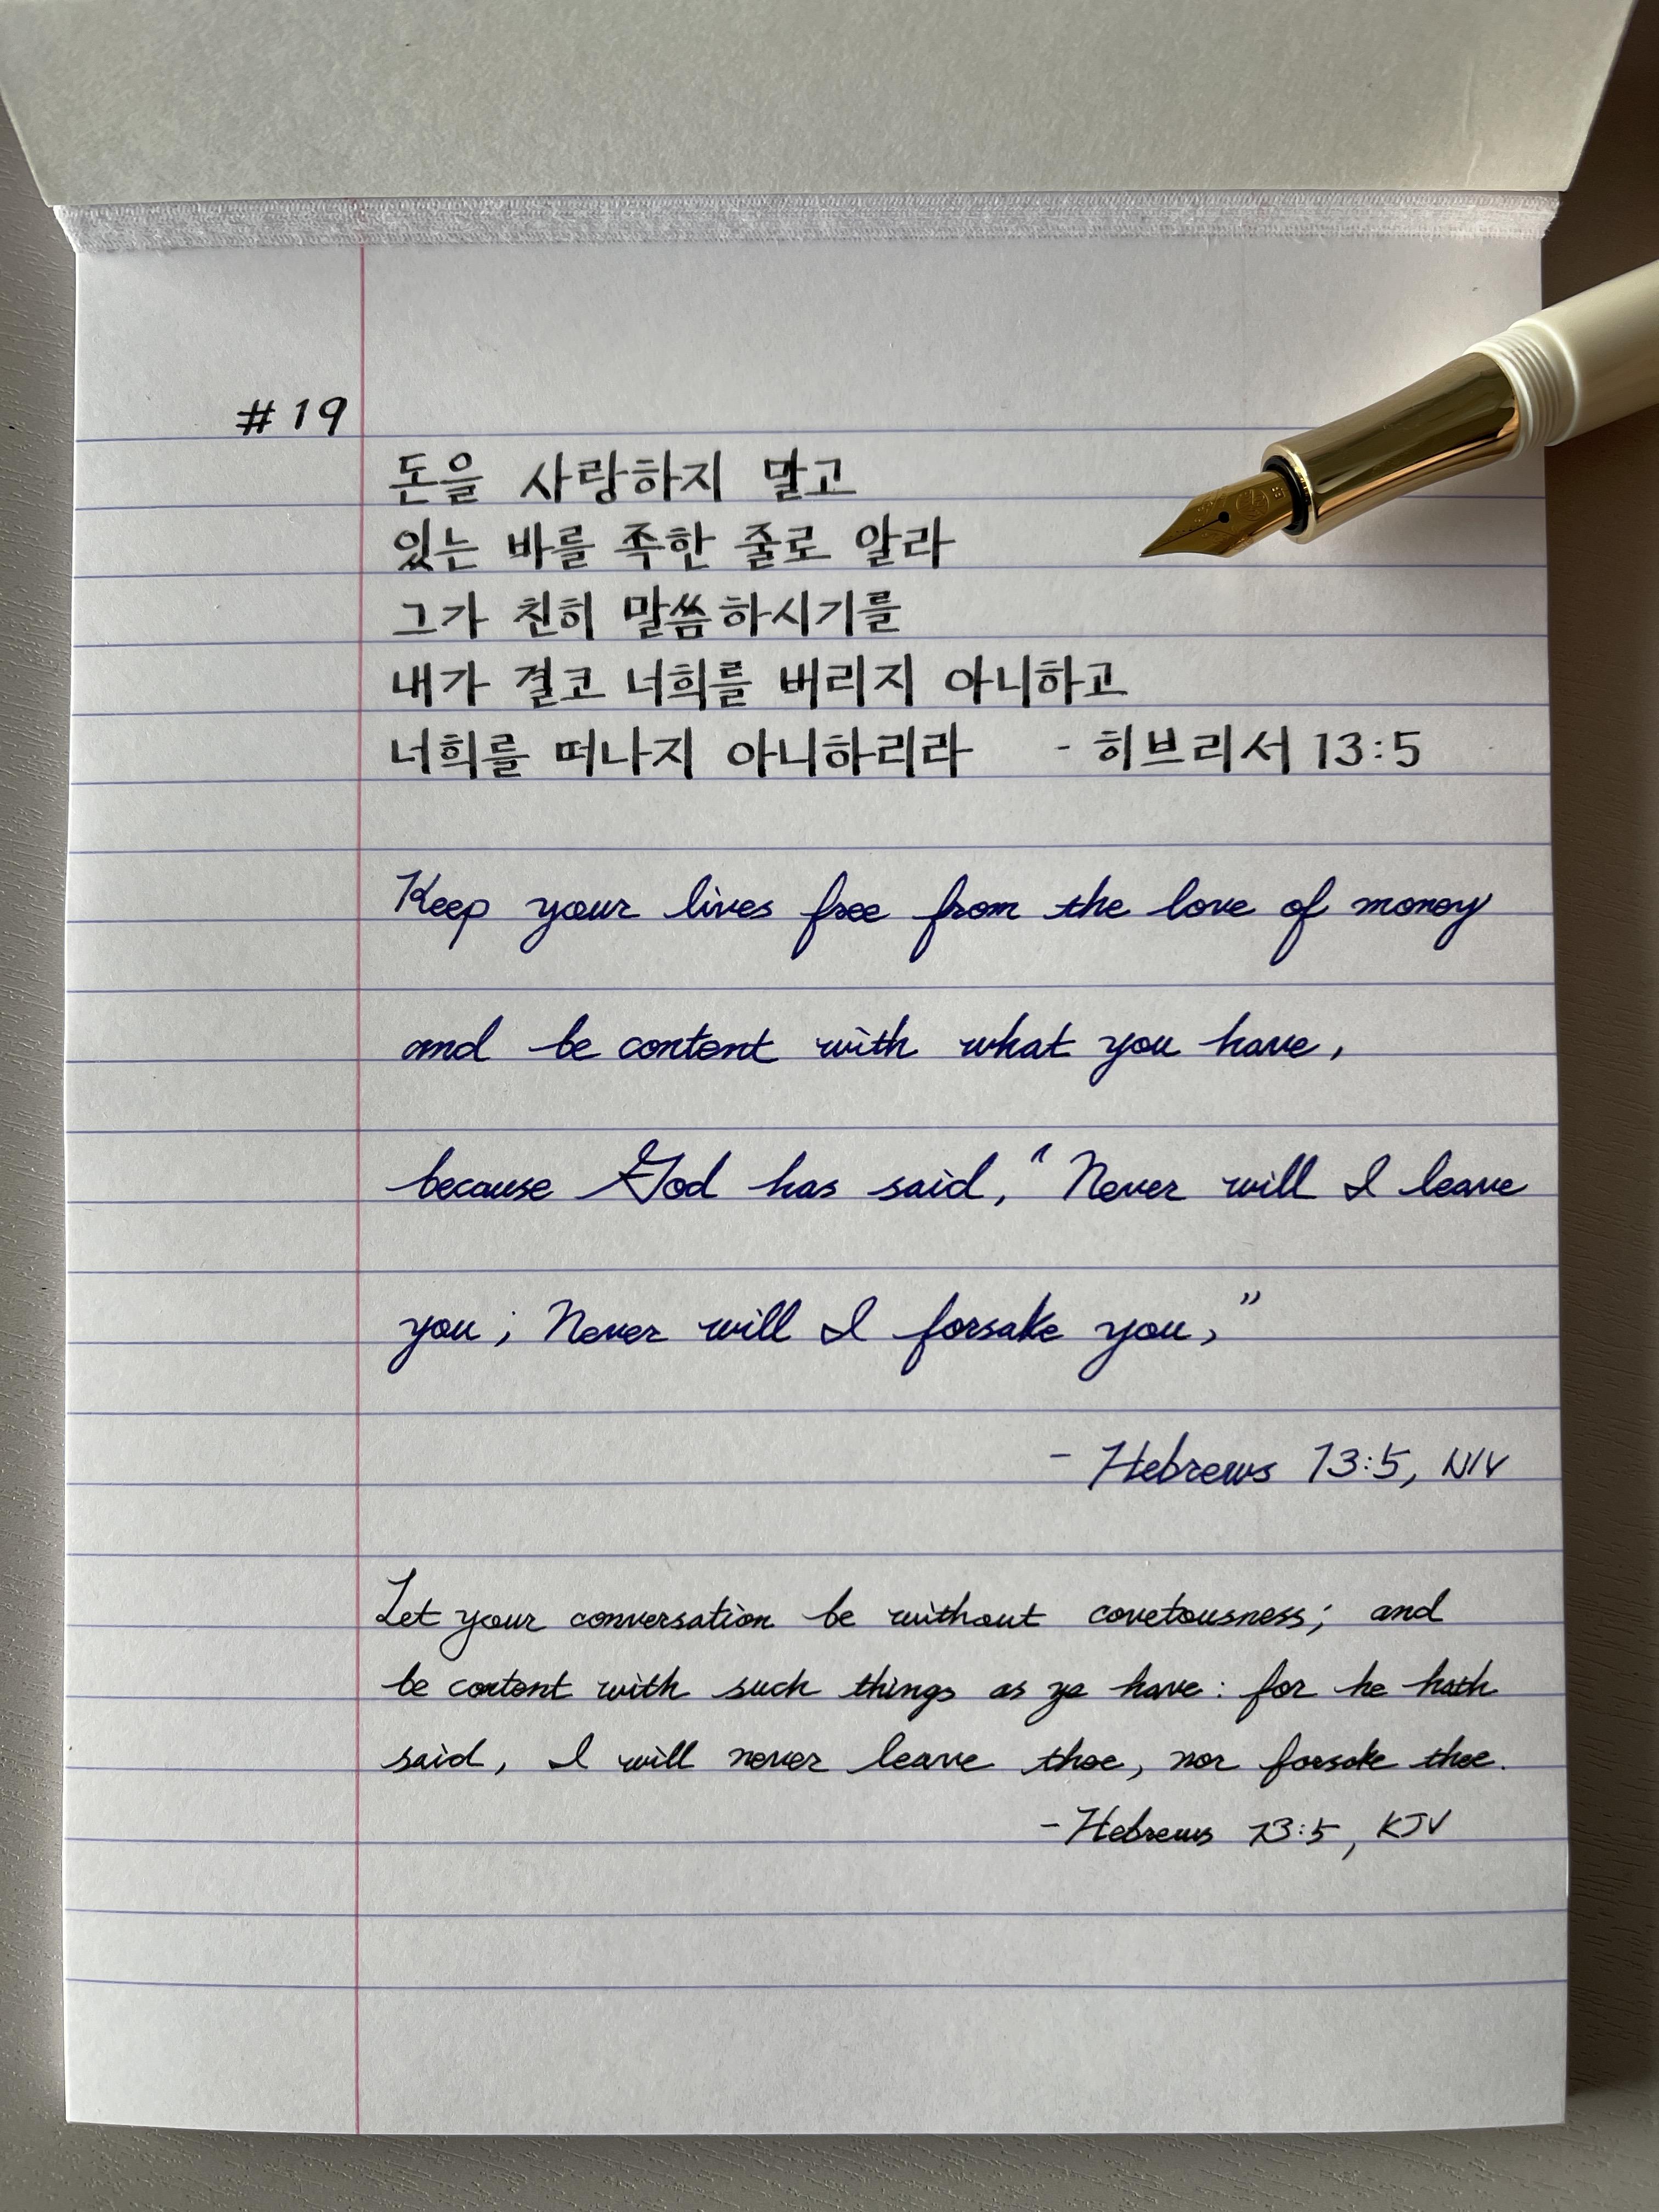 #19
돈을 사랑하지 말고
있는 바를 족한 줄로 알라
그가 친히 말씀하시기를
내가 결코 너희를 버리지 아니하고
너희를 떠나지 아니하리라 - 히브리서 13:5
Keep your lives free from the love of money
and be content with what you have,
because God has said, “Never will I leave
you; Never will I forsake you,”
- Hebrews 13:5, NIV
Let your conversation be without covetousness; and
be content with such things as ye have: for he hath
said, I will never leave thee, nor forsake thee.
- Hebrews 13:5, KJV